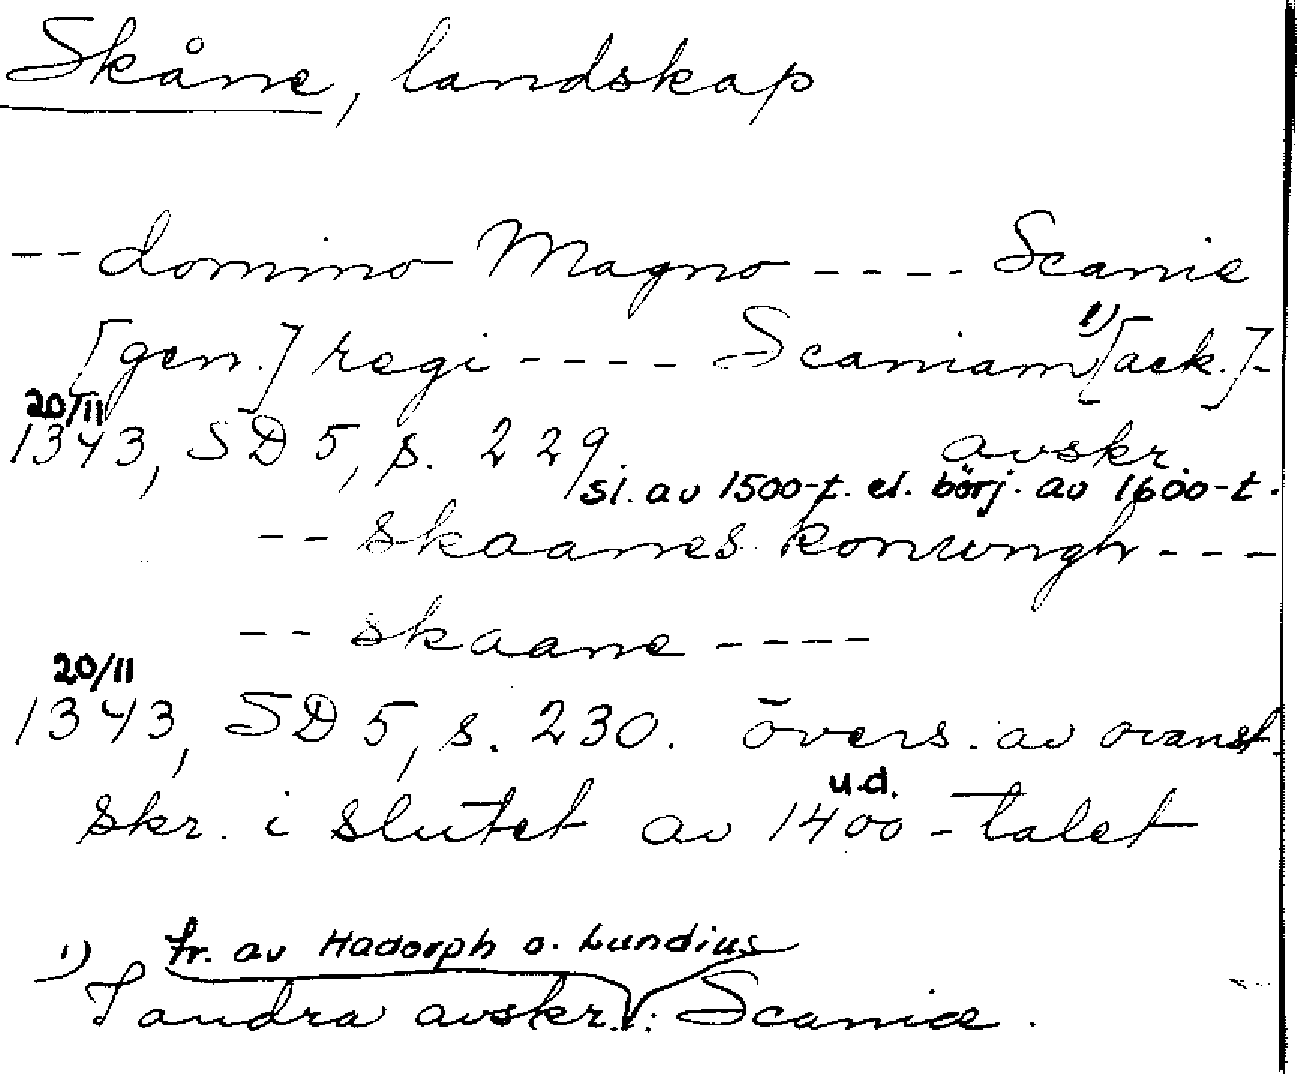 Skåne, landskap
-- domino Magno ---- Scanie
[gen.] regi ---- Scaniam 1) [ack.]-
20/11
1343, SD 5, s. 229. avskr.
sl. av 1500-t. el. börj. av 1600-t.
-- skaanes konungh ---
-- skaane ----
20/11
1343, SD 5, s. 230. övers. av ovanst.
u.d.
skr. i slutet av 1400-talet
fr. av Hadorph o. Lundius
1) I andra avskr.: Scaniæ.